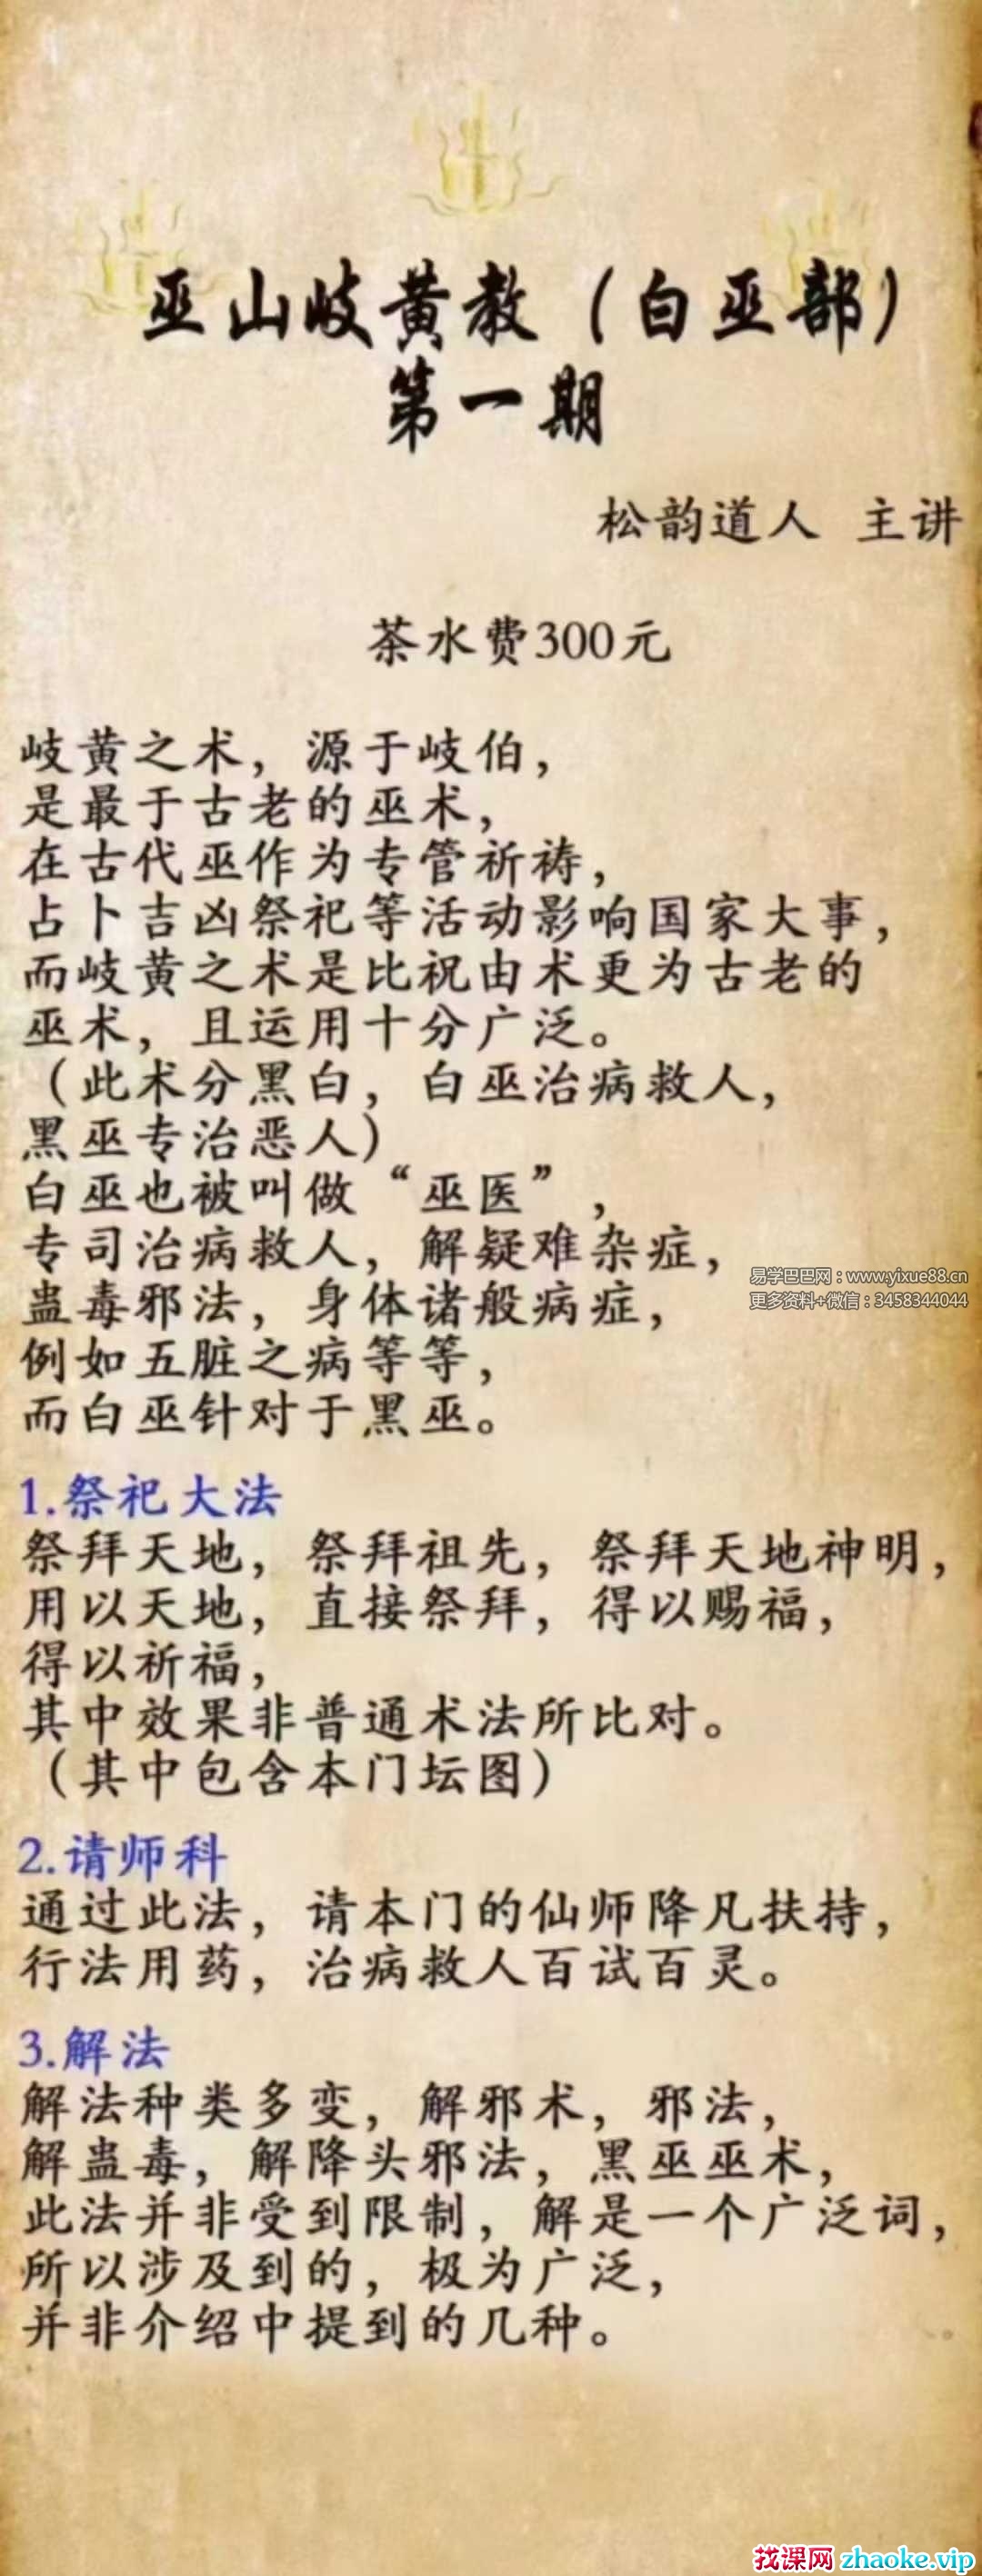 巫山岐黄教（白巫部）
第一期
松韵道人 主讲
茶水费300元
岐黄之术，源于岐伯，
是最于古老的巫术，
在古代巫作为专管祈祷，
占卜吉凶祭祀等活动影响国家大事，
而岐黄之术是比祝由术更为古老的
巫术，且运用十分广泛。
（此术分黑白，白巫治病救人，
黑巫专治恶人）
白巫也被叫做“巫医”，
专司治病救人，解疑难杂症，
蛊毒邪法，身体诸般病症，
例如五脏之病等等，
而白巫针对于黑巫。
易学巴巴网：www.yixue88.cn
更多资料+微信：3458344044
1.祭祀大法
祭拜天地，祭拜祖先，祭拜天地神明，
用以天地，直接祭拜，得以赐福，
得以祈福，
其中效果非普通术法所比对。
（其中包含本门坛图）
2.请师科
通过此法，请本门的仙师降凡扶持，
行法用药，治病救人百试百灵。
3.解法
解法种类多变，解邪术，邪法，
解蛊毒，解降头邪法，黑巫巫术，
此法并非受到限制，解是一个广泛词，
所以涉及到的，极为广泛，
并非介绍中提到的几种。
找课网 zhaoke.vip